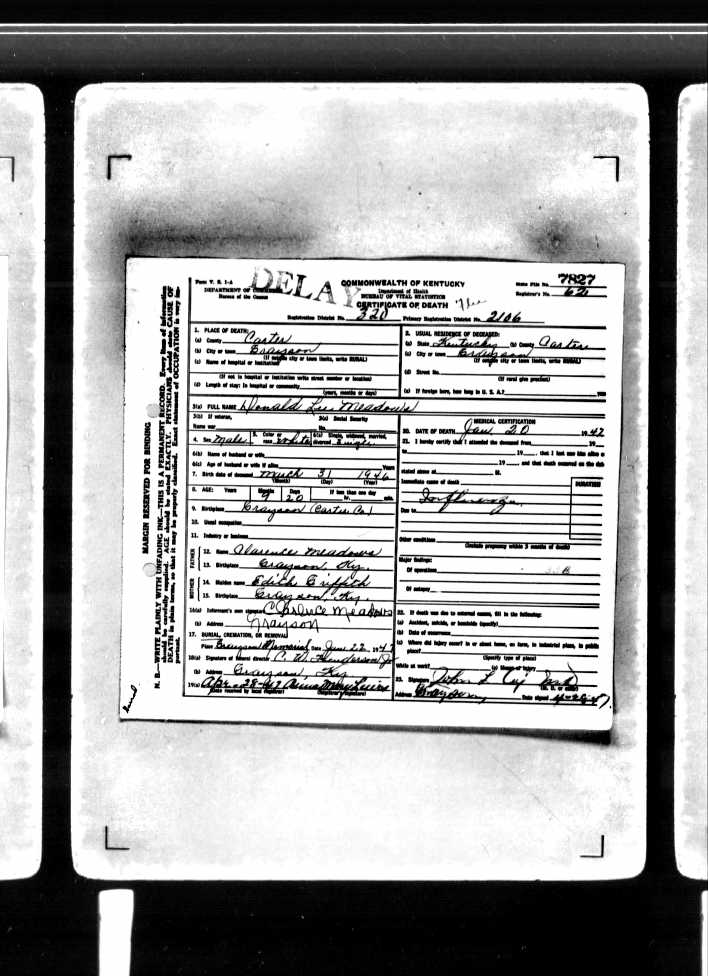 MARGIN RESERVED FOR BINDING
N. B.—WRITE PLAINLY WITH UNFADING INK—THIS IS A PERMANENT RECORD. Every item of information
should be carefully supplied. AGE should be stated EXACTLY. PHYSICIANS should state CAUSE OF
DEATH in plain terms, so that it may be properly classified. Exact statement of OCCUPATION is very im-
portant.
Form V. S. 1-A
DEPARTMENT OF COMMERCE
Bureau of the Census
DELAY
COMMONWEALTH OF KENTUCKY
Department of Health
BUREAU OF VITAL STATISTICS
CERTIFICATE OF DEATH
State File No. 7827
Registrar's No. 621
Registration District No. 320 Primary Registration District No. 2106
1. PLACE OF DEATH:
(a) County Carter
(b) City or town Grayson
(If outside city or town limits, write RURAL)
(c) Name of hospital or institution
(If not in hospital or institution write street number or location)
(d) Length of stay: In hospital or community
(years, months or days)
2. USUAL RESIDENCE OF DECEASED:
(a) State Kentucky (b) County Carter
(c) City or town Grayson
(If outside city or town limits, write RURAL)
(d) Street No.
(If rural give precinct)
(e) If foreign born, how long in U. S. A.? years
3(a) FULL NAME Donald Lee Meadows
3(b) If veteran,
Name war
3(c) Social Security
No.
4. Sex Male 5. Color or race White 6(a) Single, widowed, married, divorced Single
6(b) Name of husband or wife
6(c) Age of husband or wife if alive Years
7. Birth date of deceased March 31 1946
(Month) (Day) (Year)
8. AGE: Years Months 9 Days 20 If less than one day hr. min.
9. Birthplace Grayson (Carter Co.)
10. Usual occupation
11. Industry or business
FATHER
12. Name Clarence Meadows
13. Birthplace Grayson, Ky.
MOTHER
14. Maiden name Edith Griffith
15. Birthplace Grayson, Ky.
16(a) Informant's own signature Clarence Meadows
(b) Address Grayson
17. BURIAL, CREMATION, OR REMOVAL
Place Grayson Memorial Date Jan 22, 1947
18(a) Signature of funeral director C. W. Henderson Jr
(b) Address Grayson, Ky
19(a) Apr-28-47
(Date received by local registrar) (Registrar's signature)
MEDICAL CERTIFICATION
20. DATE OF DEATH Jan 20 1947
21. I hereby certify that I attended the deceased from 19
to 19, that I last saw him alive
19 and that death occurred on the date
stated above at M.
Immediate cause of death
DURATION
Influenza
Due to
Other conditions
(Include pregnancy within 3 months of death)
Major findings:
Of operations
Of autopsy
22. If death was due to external causes, fill in the following:
(a) Accident, suicide, or homicide (specify)
(b) Date of occurrence
(c) Where did injury occur? In or about home, on farm, in industrial place, in public
place?
(Specify type of place)
While at work? (e) Means of injury
23. Signature John L
(M. D. or other)
Address Grayson Date signed